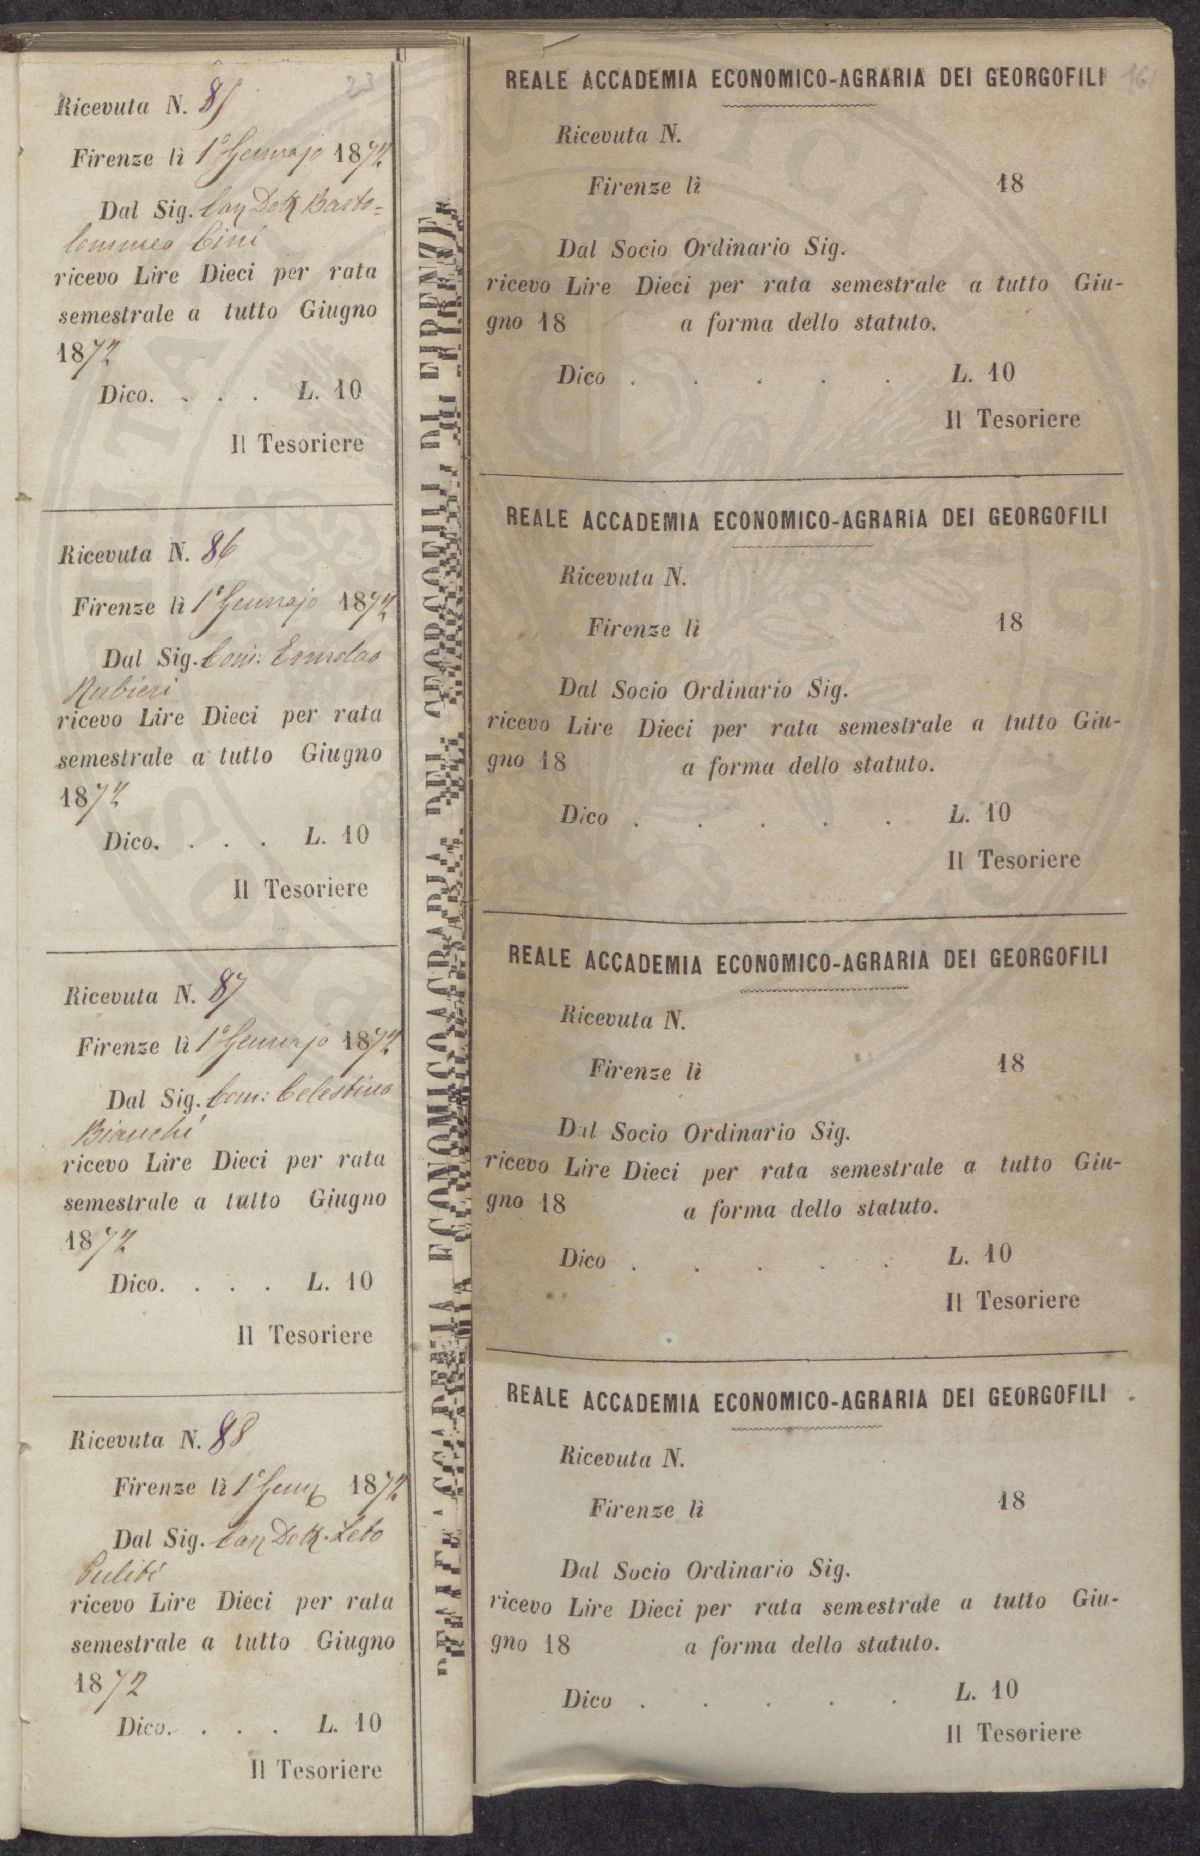 23
Ricevuta N. 85
Firenze lì 1º Gennajo 1872
Dal Sig. Cav Dott Barto=
lommeo Cini
ricevo Lire Dieci per rata
semestrale a tutto Giugno
1872
Dico. . . . L. 10
Il Tesoriere
Ricevuta N. 86
Firenze lì 1º Gennajo 1872
Dal Sig. Com: Ermolao
Rubieri
ricevo Lire Dieci per rata
semestrale a tutto Giugno
1872
Dico. . . . L. 10
Il Tesoriere
Ricevuta N. 87
Firenze lì 1º Gennajo 1872
Dal Sig. Com: Celestino
Bianchi
ricevo Lire Dieci per rata
semestrale a tutto Giugno
1872
Dico. . . . L. 10
Il Tesoriere
Ricevuta N. 88
Firenze lì 1º Genn 1872
Dal Sig. Cav Dott. Leto
Puliti
ricevo Lire Dieci per rata
semestrale a tutto Giugno
1872
Dico. . . . L. 10
Il Tesoriere
REALE ACCADEMIA ECONOMICO AGRARIA DEI GEORGOFILI DI FIRENZE
REALE ACCADEMIA ECONOMICO-AGRARIA DEI GEORGOFILI
Ricevuta N.
Firenze lì 18
Dal Socio Ordinario Sig.
ricevo Lire Dieci per rata semestrale a tutto Giu-
gno 18 a forma dello statuto.
Dico . . . . . L. 10
Il Tesoriere
REALE ACCADEMIA ECONOMICO-AGRARIA DEI GEORGOFILI
Ricevuta N.
Firenze lì 18
Dal Socio Ordinario Sig.
ricevo Lire Dieci per rata semestrale a tutto Giu-
gno 18 a forma dello statuto.
Dico . . . . . L. 10
Il Tesoriere
REALE ACCADEMIA ECONOMICO-AGRARIA DEI GEORGOFILI
Ricevuta N.
Firenze lì 18
Dal Socio Ordinario Sig.
ricevo Lire Dieci per rata semestrale a tutto Giu-
gno 18 a forma dello statuto.
Dico . . . . . L. 10
Il Tesoriere
REALE ACCADEMIA ECONOMICO-AGRARIA DEI GEORGOFILI
Ricevuta N.
Firenze lì 18
Dal Socio Ordinario Sig.
ricevo Lire Dieci per rata semestrale a tutto Giu-
gno 18 a forma dello statuto.
Dico . . . . . L. 10
Il Tesoriere